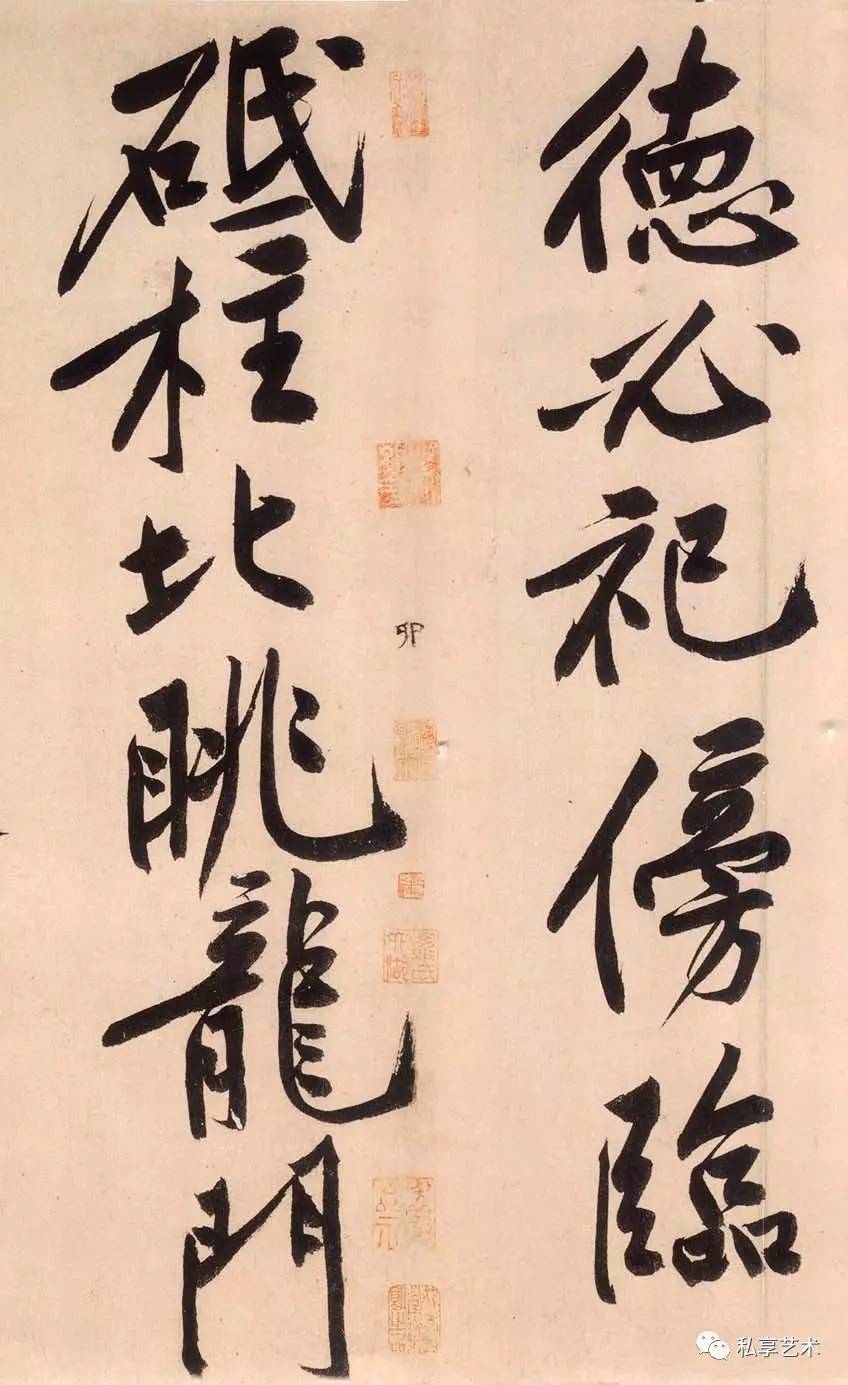 德必祀傍臨
卯
砥柱北眺龍門
私享艺术